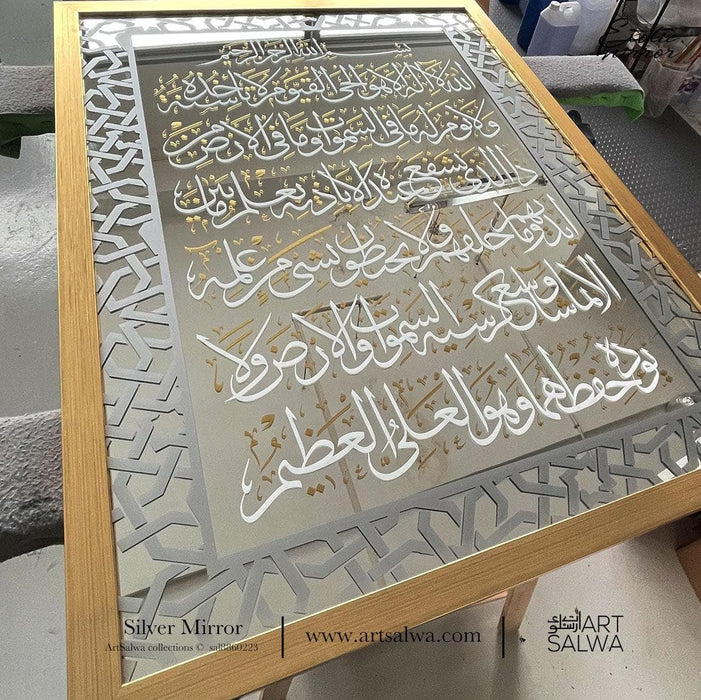 بسم الله الرحمن الرحيم
الله لا اله الا هو الحي القيوم لا تأخذه سنة
ولا نوم له ما في السموات وما في الارض من
ذا الذي يشفع عنده الا باذنه يعلم ما بين
ايديهم وما خلفهم ولا يحيطون بشئ من علمه
الا بما شاء وسع كرسيه السموات والارض ولا
يوده حفظهما وهو العلي العظيم
Silver Mirror
ArtSalwa collections © sal8860223
www.artsalwa.com
ART
SALWA